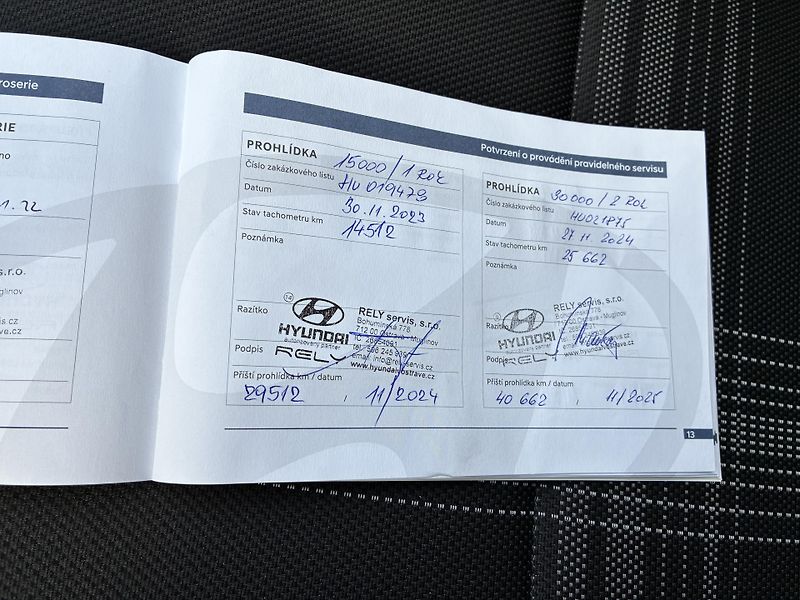 roserie
RIE
no
1. 22
s.r.o.
Muglinov
s.cz
ave.cz
Potvrzení o provádění pravidelného servisu
PROHLÍDKA 15000/1 ROK
Číslo zakázkového listu HU019479
Datum 30.11.2023
Stav tachometru km 14512
Poznámka
Razítko
14
HYUNDAI
autorizovaný partner
RELY
RELY servis, s.r.o.
Bohumínská 778
712 00 Ostrava - Muglinov
www.hyundaivostrave.cz
Podpis
Příští prohlídka km / datum
29512 , 11/2024
PROHLÍDKA 30000/2 ROK
Číslo zakázkového listu HU021875
Datum 27 11. 2024
Stav tachometru km 25 662
Poznámka
Razítko
HYUNDAI
autorizovaný partner
RELY
RELY servis, s.r.o.
Bohumínská 778
712 00 Ostrava - Muglinov
www.hyundaivostrave.cz
Podpis
Příští prohlídka km / datum
40 662 , 11/2025
13